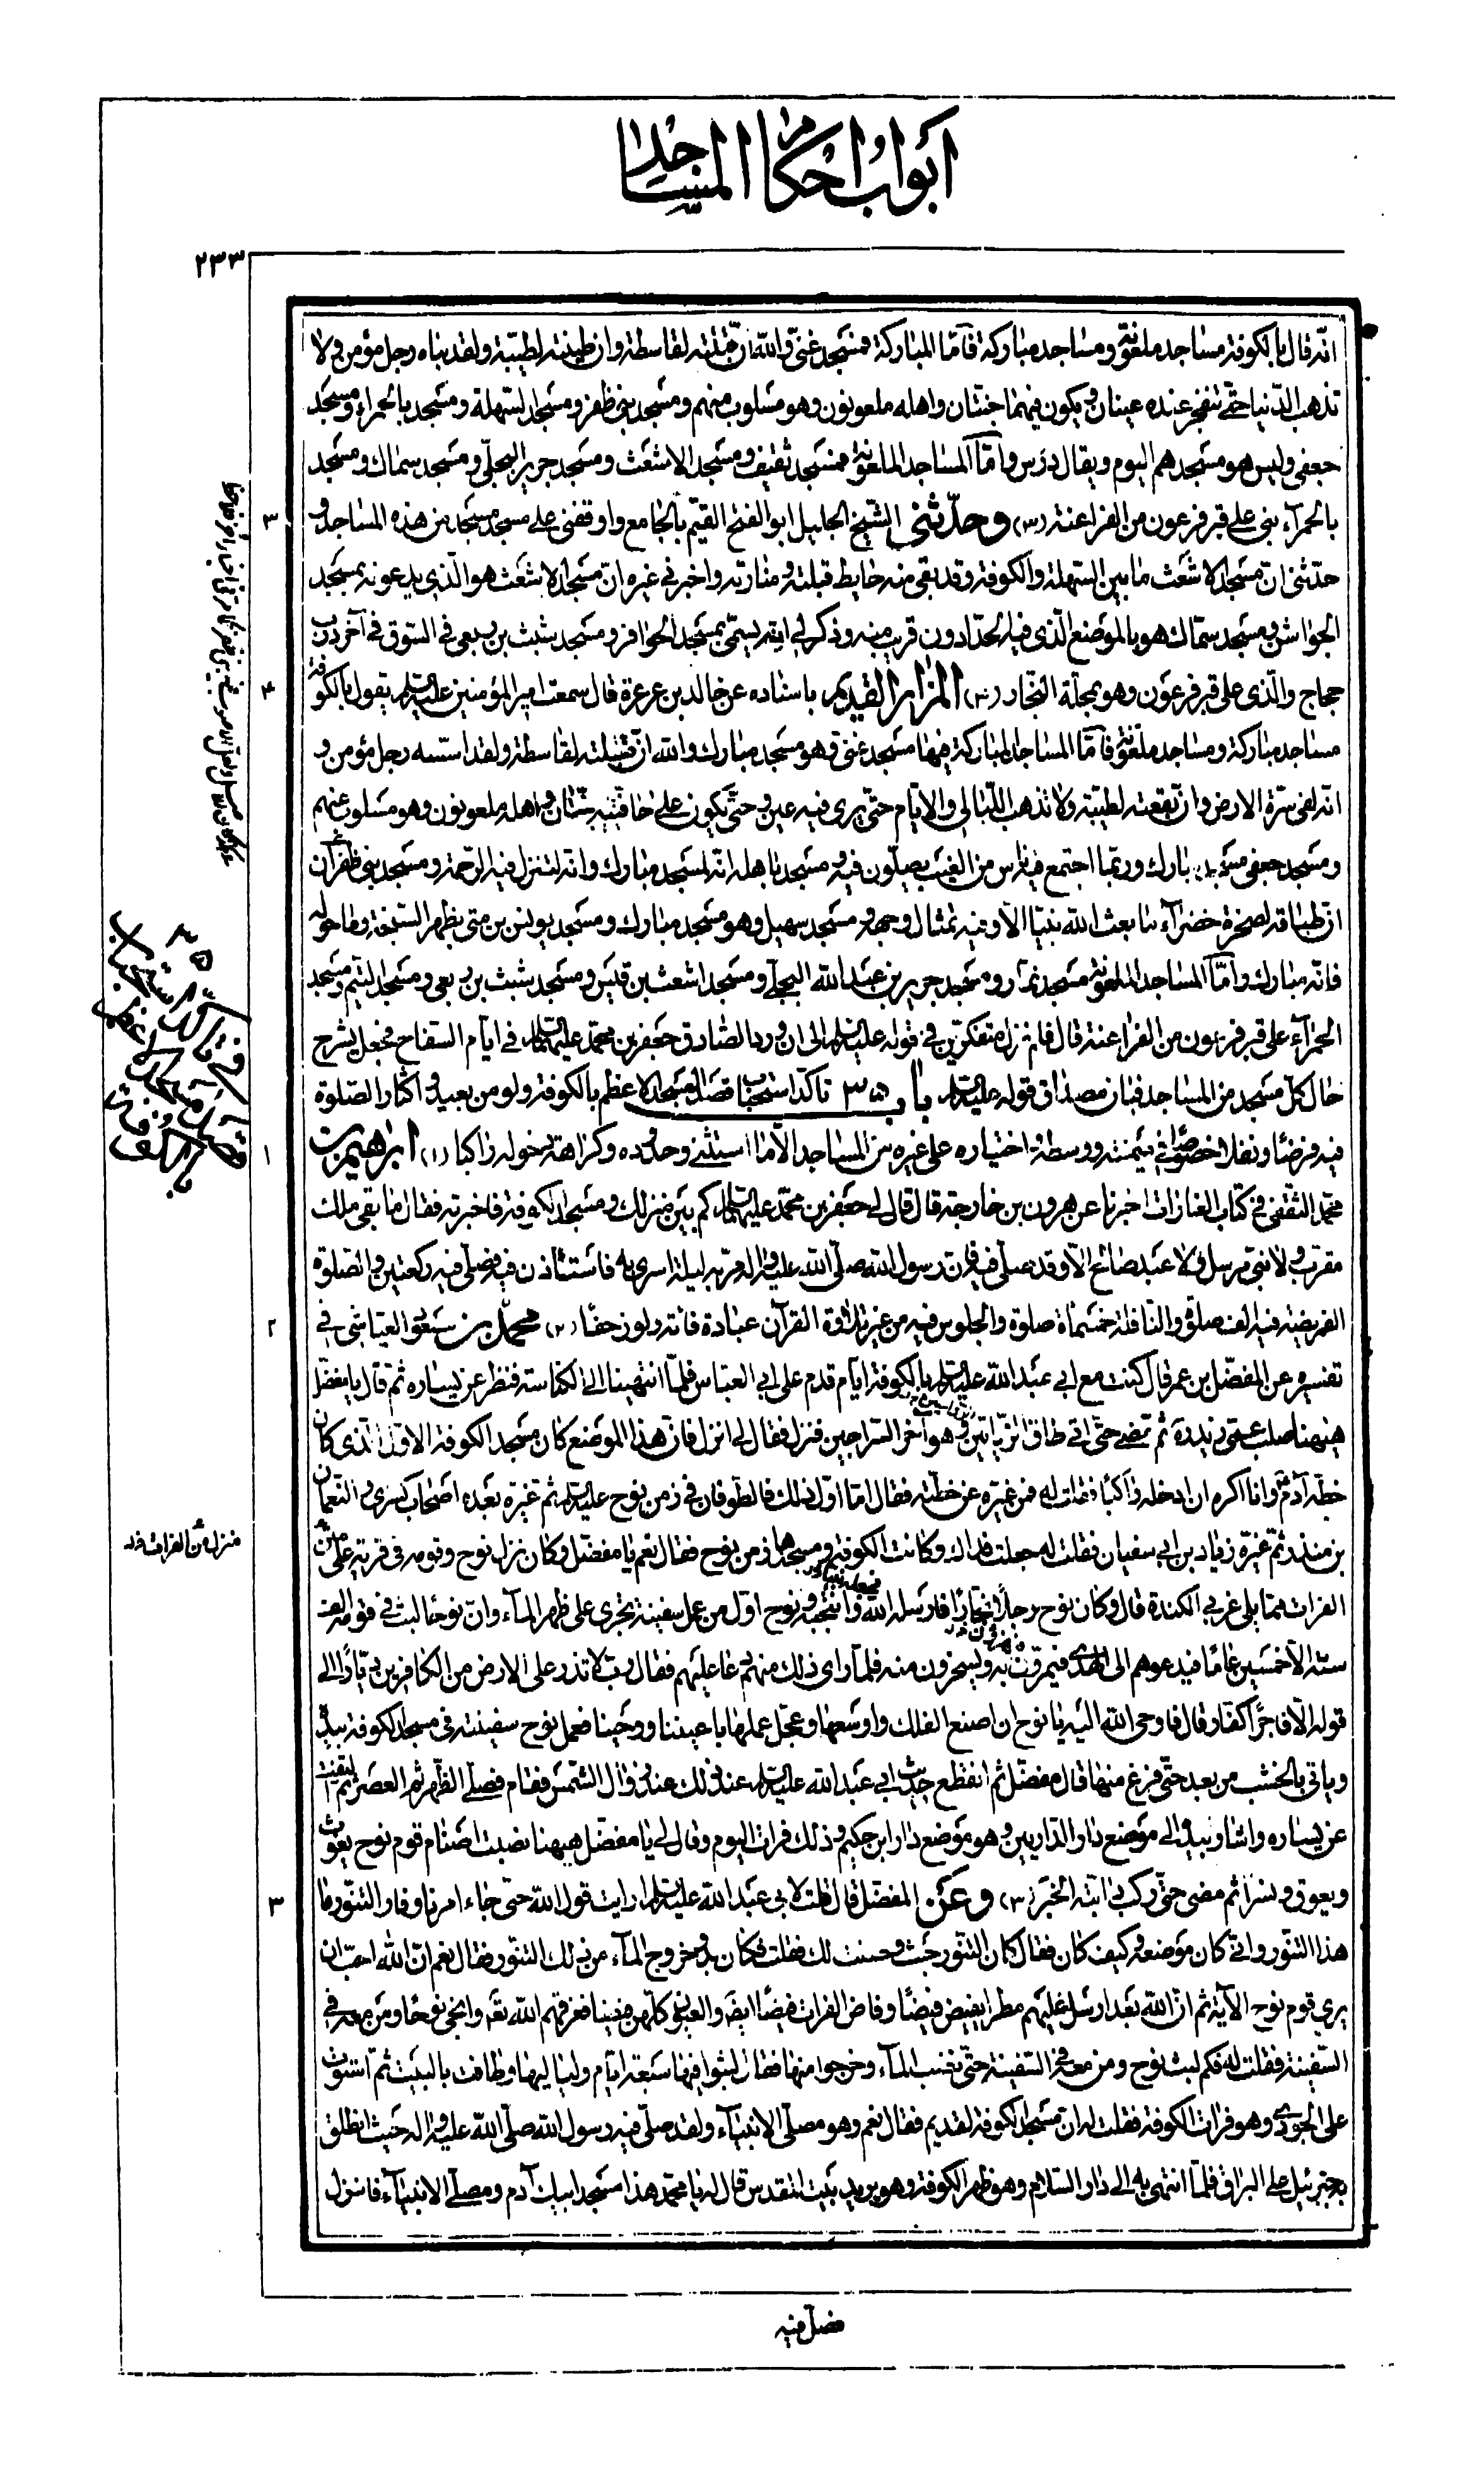 أبواب أحكام المساجد
٢٣٣
انّه قال بالكوفة مساجد ملعونة ومساجد مباركة فأمّا المباركة فمسجد غنىّ والله انّ قبلته لقاسطة وان طينته لطيبة ولقد بناه رجل مؤمن ولا
تذهب الدّنيا حتى تنفجر عنده عينان ويكون فيهما جنتان واهله ملعونون وهو مسلوب منهم ومسجد بنى ظفر ومسجد السّهلة ومسجد بالحمراء ومسجد
جعفى وليس هو مسجدهم اليوم ويقال درس وامّا المساجد الملعونة فمسجد ثقيف ومسجد الاشعث ومسجد جرير البجلىّ ومسجد سماك ومسجد
بالحمرآء بنى على قبر فرعون من الفراعنة (٣) وحدّثنى الشّيخ الجليل ابو الفتح القيّم بالجامع واوقفنى على مسجد مسجد من هذه المساجد و
حدّثنى انّ مسجد الاشعث ما بين السّهلة والكوفة وقد بقى منه حايط قبلته ومنارته واخبرنى غيره انّ مسجد الاشعث هو الّذى يدعونه بمسجد
الجواشن ومسجد سمّاك هو بالموضع الّذى فيه الحدّادون قريب منه وذكر لى انّه يسمّى بمسجد الحوافر ومسجد شبث بن ربعى فى السّوق فى آخر درب
حجاج والّذى على قبر فرعون وهو بمحلّة النّجار (٤) المزار القديم باسناده عن خالد بن عرعرة قال سمعت امير المؤمنين عليه السلام يقول بالكوفة
مساجد مباركة ومساجد ملعونة فأمّا المساجد المباركة فمنها مسجد غنى وهو مسجد مبارك والله انّ قبلته لقاسطة ولقد اسّسه رجل مؤمن و
انّه لفى سرّة الارض وانّ بقعته لطيّبة ولا تذهب اللّيالى والايّام حتّى يرى فيه عين وحتّى يكون على حافتيه جنّتان واهله ملعونون وهو مسلوب عنهم
ومسجد جعفى مسجد مبارك وربما اجتمع فيه ناس من الغيب يصلّون فيه ومسجد باهله انّه لمسجد مبارك وانّه لتنزل فيه الرّحمة ومسجد بنى ظفر
انّ طباقه لصخرة خضرآء ما بعث الله نبيّا الّا وفيه تمثال وجهه ومسجد سهيل وهو مسجد مبارك ومسجد يونس بن متى بظهر السّبخة وما حوله
فانّه مبارك وأمّا المساجد الملعونة مسجد ومسجد جرير بن عبد الله البجلى ومسجد اشعث بن قيس ومسجد شبث بن ربعى ومسجد التّيم ومسجد
الحمرآء على قبر فرعون من الفراعنة قال فلم نزل متفكّرين فى قوله عليه السلام الى ان ورد الصّادق جعفر بن محمّد عليهما السلام فى ايّام السّفاح فجعل يشرح
حال كلّ مسجد من المساجد فبان مصداق قوله عليه السلام باب ٣٥ تأكّد استحباب قصد المسجد الاعظم بالكوفة ولو من بعيد واكثار الصّلوة
فيه فرضا ونفلا خصوصا فى ميمنته ووسطه واختياره على غيره من المساجد الّا ما استثنى وحدوده وكراهة دخوله راكبا (١) ابرهيم بن
محمّد الثّقفى فى كتاب الغارات اخبرنا عن هرون بن خارجة قال قال لى جعفر بن محمّد عليهما السلام كم بين منزلك ومسجد الكوفة فاخبرته فقال ما بقى ملك
مقرّب ولا نبىّ مرسل ولا عبد صالح الّا وقد صلّى فيه وانّ رسول الله صلّى الله عليه وآله مرّ به ليلة اسرى به فاستأذن فيه فصلّى فيه ركعتين والصّلوة
الفريضة فيه الف صلوة والنّافلة خمسمأة صلوة والجلوس فيه من غير تلاوة القرآن عبادة فأته ولو زحفا (٢) محمّد بن مسعود العيّاشى فى
تفسيره عن المفضّل بن عمر قال كنت مع ابى عبد الله عليه السلام بالكوفة ايّام قدم على ابى العبّاس فلمّا انتهينا الى الكناسة فنظر عن يساره ثمّ قال يا مفضّل
هيهنا صلب عمّى زيد ره ثمّ مضى حتّى اتى طاق الزيّاتين وهو آخر السّراجين فنزل فقال لى انزل فانّ هذا الموضع كان مسجد الكوفة الاوّل الّذى كان
خطّه آدم وانا اكره ان ادخله راكبا فقلت له فمن غيّره عن خطّته فقال امّا اوّل ذلك فالطّوفان فى زمن نوح عليه السلام ثمّ غيّره بعده اصحاب كسرى والنّعمان
بن منذر ثمّ غيّره زياد بن ابى سفيان فقلت له جعلت فداك وكانت الكوفة ومسجدها فى زمن نوح فقال نعم يا مفضّل وكان منزل نوح وقومه فى قرية على متن
الفرات ممّا يلى غربى الكوفة قال وكان نوح رجلا نجّارا فارسله الله وانتجبه ونوح اوّل من عمل سفينة تجرى على ظهر المآء وانّ نوحا لبث فى قومه الف
سنة الّا خمسين عاما فيدعوهم الى الهدى فيمرّون به ويسخرون منه فلمّا رأى ذلك منهم دعا عليهم فقال ربّ لا تذر على الارض من الكافرين ديّارا الى
قوله الّا فاجرا كفّارا قال فاوحى الله اليه يا نوح ان اصنع الفلك واوسعها وعجّل عملها باعيننا ووحينا فعمل نوح سفينته فى مسجد الكوفة بيده
ويأتى بالخشب من بعد حتّى فرغ منها قال مفضّل ثمّ انقطع حديث ابى عبد الله عليه السلام عند ذلك عند زوال الشّمس فقام فصلّى الظّهر ثمّ العصر ثمّ التفت
عن يساره واشار بيده الى موضع دار الدّاريين وهو موضع دار ابن حكيم وذلك فرات اليوم وقال لى يا مفضّل هيهنا نصبت اصنام قوم نوح يغوث
ويعوق ونسرا ثمّ مضى حتّى ركب دابّته الخبر (٣) وعن المفضّل قال قلت لابى عبد الله عليه السلام ارايت قول الله حتّى جاء امرنا وفار التنّور ما
هذا التنّور وانّى كان موضعه وكيف كان فقال كان التنّور حيث وصفت لك فقلت فكان بدو خروج المآء من ذلك التنّور فقال نعم انّ الله احبّ ان
يرى قوم نوح الآية ثمّ انّ الله بعد ارسل عليهم مطرا يفيض فيضا وفاض الفرات فيضا ايضا والعيون كلّهن فيضا فغرقهم الله تعالى وانجى نوحا ومن معه فى
السّفينة فقلت له فكم لبث نوح ومن معه فى السّفينة حتّى نضب المآء وخرجوا منها فقال لبثوا فيها سبعة ايّام ولياليها وطافت بالبيت ثمّ استوت
على الجودى وهو فرات الكوفة فقلت له ان مسجد الكوفة لقديم فقال نعم وهو مصلّى الانبيآء ولقد صلّى فيه رسول الله صلّى الله عليه وآله حيث انطلق
به جبرئيل على البراق فلمّا انتهى به الى دار السّلام وهو ظهر الكوفة وهو يريد بيت المقدس قال له يا محمّد هذا مسجد ابيك آدم ومصلّى الانبيآء فانزل
فصلّ فيه
٣
٤
١
٢
٣
٣٥
منزله من الفرات خ